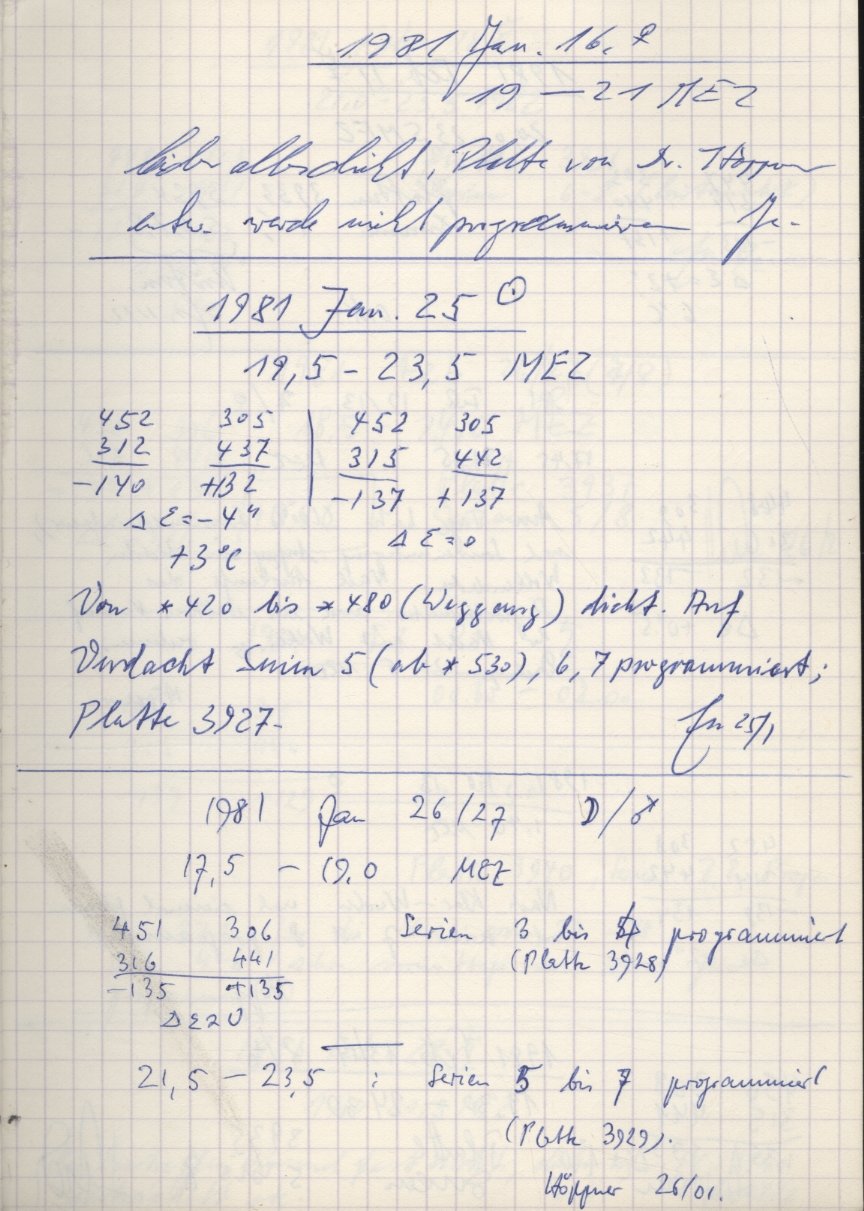 1981 Jan. 16. ♀
19 — 21 MEZ
leider alles dicht, Platte von Dr. Höppner
werde nicht programmieren
1981 Jan. 25 ☉
19,5 – 23,5 MEZ
452 305 | 452 305
312 437 | 315 442
–140 +132 | –137 +137
Δ Σ = –4" Δ Σ = 0
+3°C
Von *420 bis *480 (Weggang) dicht. Auf
Verdacht Serien 5 (ab * 530), 6, 7 programmiert;
Platte 3927. 25/1
1981 Jan 26/27 ☽/♂
17,5 – 19,0 MEZ
451 306 Serien 3 bis programmiert
316 441 (Platte 3928)
–135 +135
Δ Σ = 0
21,5 – 23,5 : Serien 5 bis 7 programmiert
(Platte 3929).
Höppner 26/01.